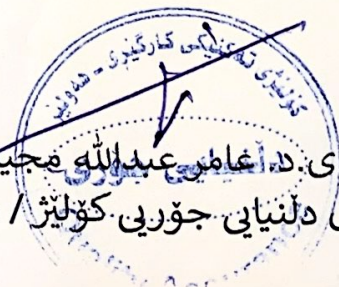 کۆلێژی تەکنیکی کارگێڕی - هەولێر
ی.د. عامر عبدالله مجید
ی دلنیایی جۆریی کۆلێژ /